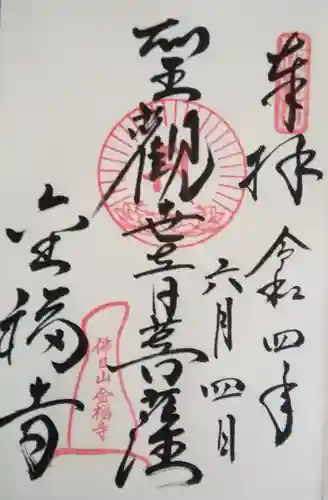 奉拝
令和四年
六月四日
聖観世音菩薩
金福寺
佛日山金福寺